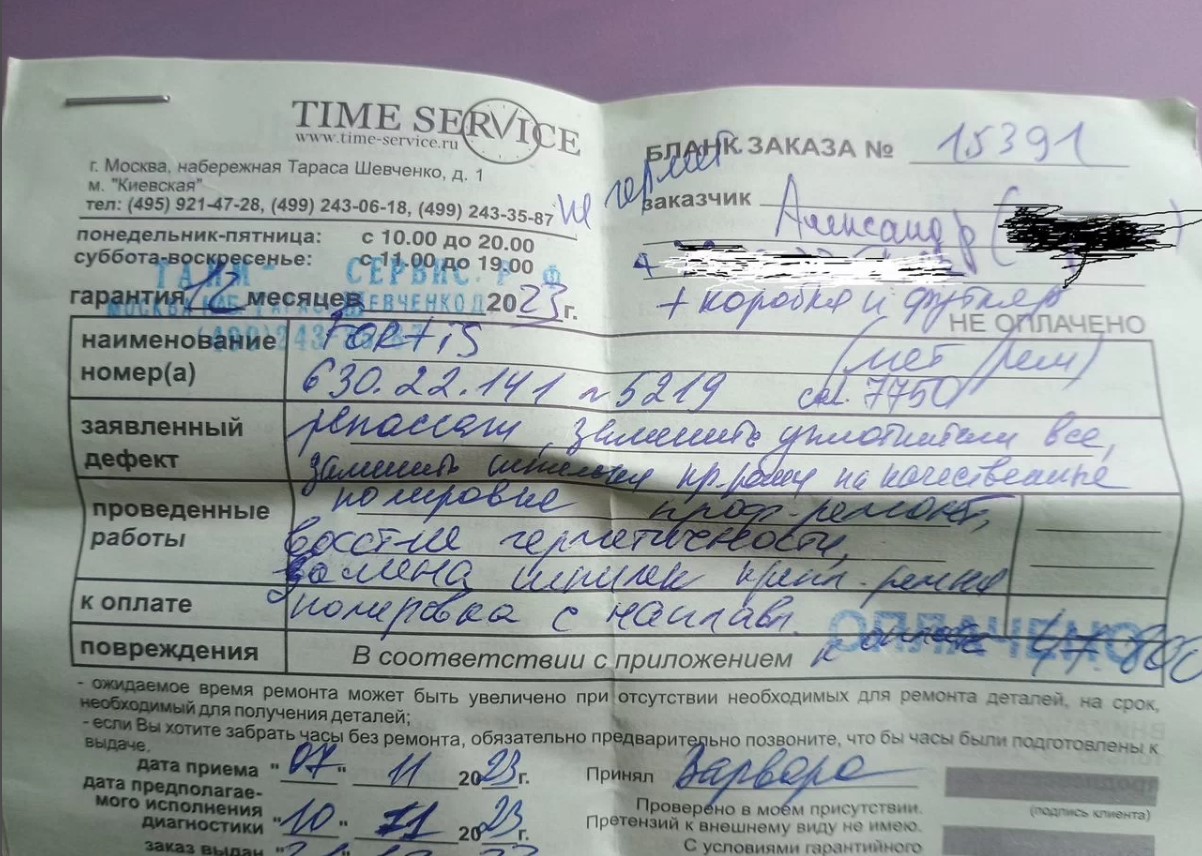 TIME SERVICE
www.time-service.ru
г. Москва, набережная Тараса Шевченко, д. 1
м. "Киевская"
тел: (495) 921-47-28, (499) 243-06-18, (499) 243-35-87
понедельник-пятница: с 10.00 до 20.00
суббота-воскресенье: с 11.00 до 19.00
гарантия 12 месяцев 2023 г.
БЛАНК ЗАКАЗА № 15391
не гермет
заказчик Александр (
+ коробка и футляр
НЕ ОПЛАЧЕНО
наименование FORTIS
номер(а) 630.22.141 n 5219 cal. 7750
заявленный репассаж, заменить уплотнители все,
дефект заменить на качественные
полировка проф. ремонт,
проведенные
работы герметичности,
замена шпилек креп. ремня
к оплате полировка с наплавл.
ОПЛАЧЕНО
к оплате 47 800
повреждения В соответствии с приложением
- ожидаемое время ремонта может быть увеличено при отсутствии необходимых для ремонта деталей, на срок,
необходимый для получения деталей;
- если Вы хотите забрать часы без ремонта, обязательно предварительно позвоните, что бы часы были подготовлены к
выдаче.
дата приема "07" 11 2023 г.
Принял Варвара
дата предполагае-
мого исполнения
диагностики "10" 11 2023 г.
(подпись клиента)
Проверено в моем присутствии.
Претензий к внешнему виду не имею.
С условиями гарантийного
заказ выдан